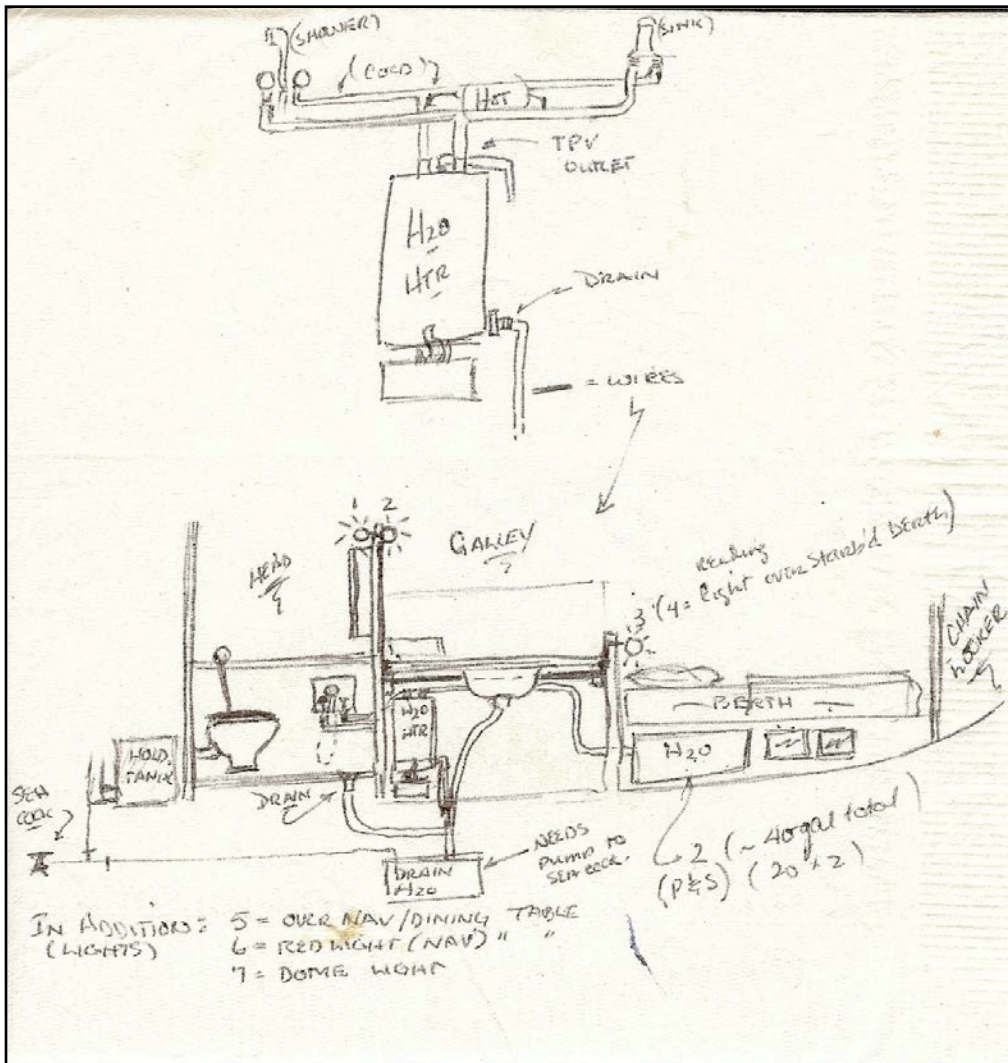 (SHOWER)
(SINK)
(COLD)
HOT
TPV
OUTLET
H2O
HTR
DRAIN
= WIRES
1 2
GALLEY
HEAD
READING
3 (4 = light over Starb'd BERTH)
CHAIN
LOCKER
BERTH
H2O
HTR
H2O
HOLD.
TANK
SEA
COCK
DRAIN
DRAIN
H2O
NEEDS
PUMP TO
SEA COCK.
2 (~ 40 gal total)
(P&S) (20 x 2)
IN ADDITION: 5 = OVER NAV/DINING TABLE
(LIGHTS) 6 = RED LIGHT (NAV) " "
7 = DOME LIGHT